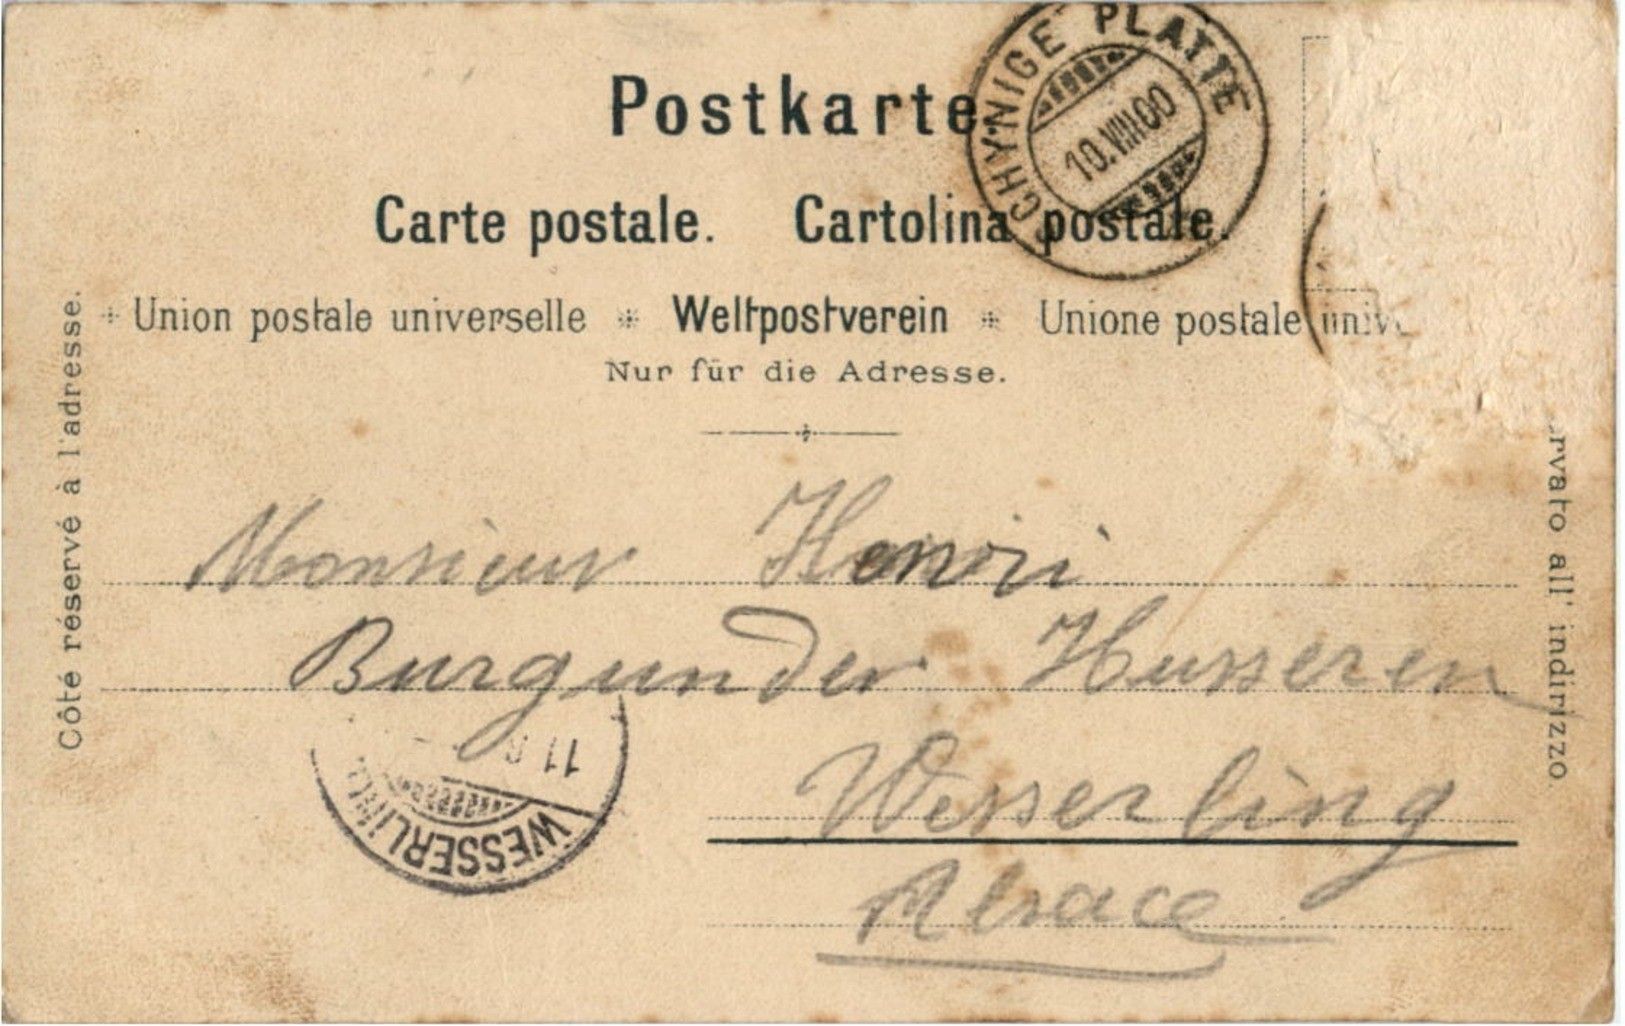 Postkarte.
Carte postale. Cartolina postale.
SCHYNIGE PLATTE
10.VIII.00
Union postale universelle Weltpostverein Unione postale univ
Nur für die Adresse.
Côté réservé à l'adresse.
rvato all' indirizzo.
Monsieur Henri
Burgunder Husseren
Wesserling
Alsace
WESSERLING
11